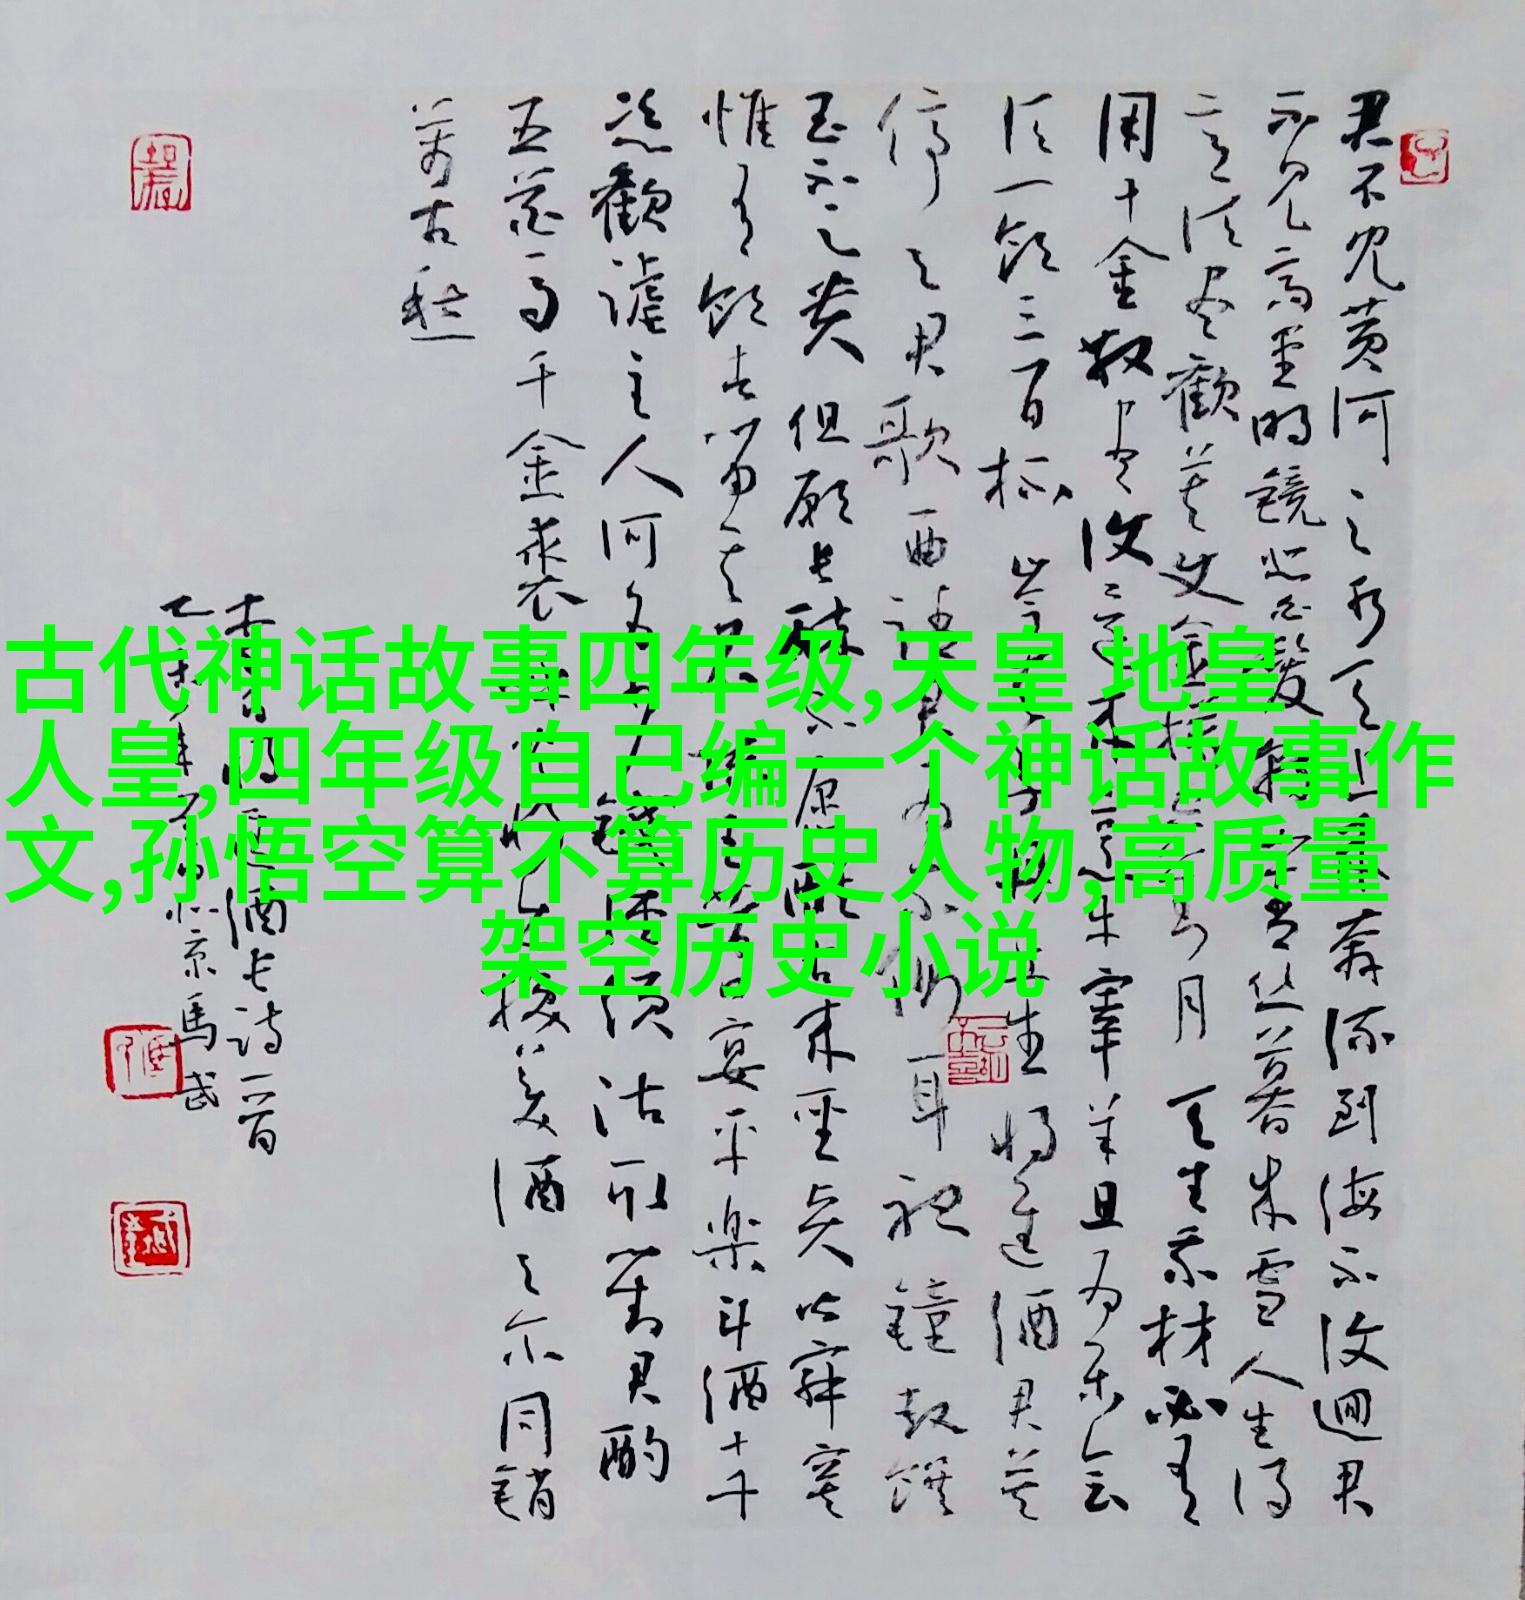 古代神话故事四年级,天皇 地皇
人皇,四年级自己编一个神话故事作
文,孙悟空算不算历史人物,高质量
架空历史小说
君不见黄河之水天上来奔流到海不復迴君
不见高堂明镜悲白髮朝如青丝暮成雪人生得
意须尽歡莫使金樽空对月天生我材必有
用千金散尽復还来烹牛宰羊且为乐会
须一饮三百杯岑夫子丹丘生将进酒君莫
停与君歌一曲请君为我侧耳聽鐘鼓馔
玉不足贵但願长醉不愿醒古来圣贤皆寂寞
惟有饮者留其名陈王昔日宴平楽斗酒十千
恣歡謔主人何为言少钱径须沽取对君酌
五花马千金裘呼儿将出换美酒与尔同销
萬古愁
李白将进酒长诗一首